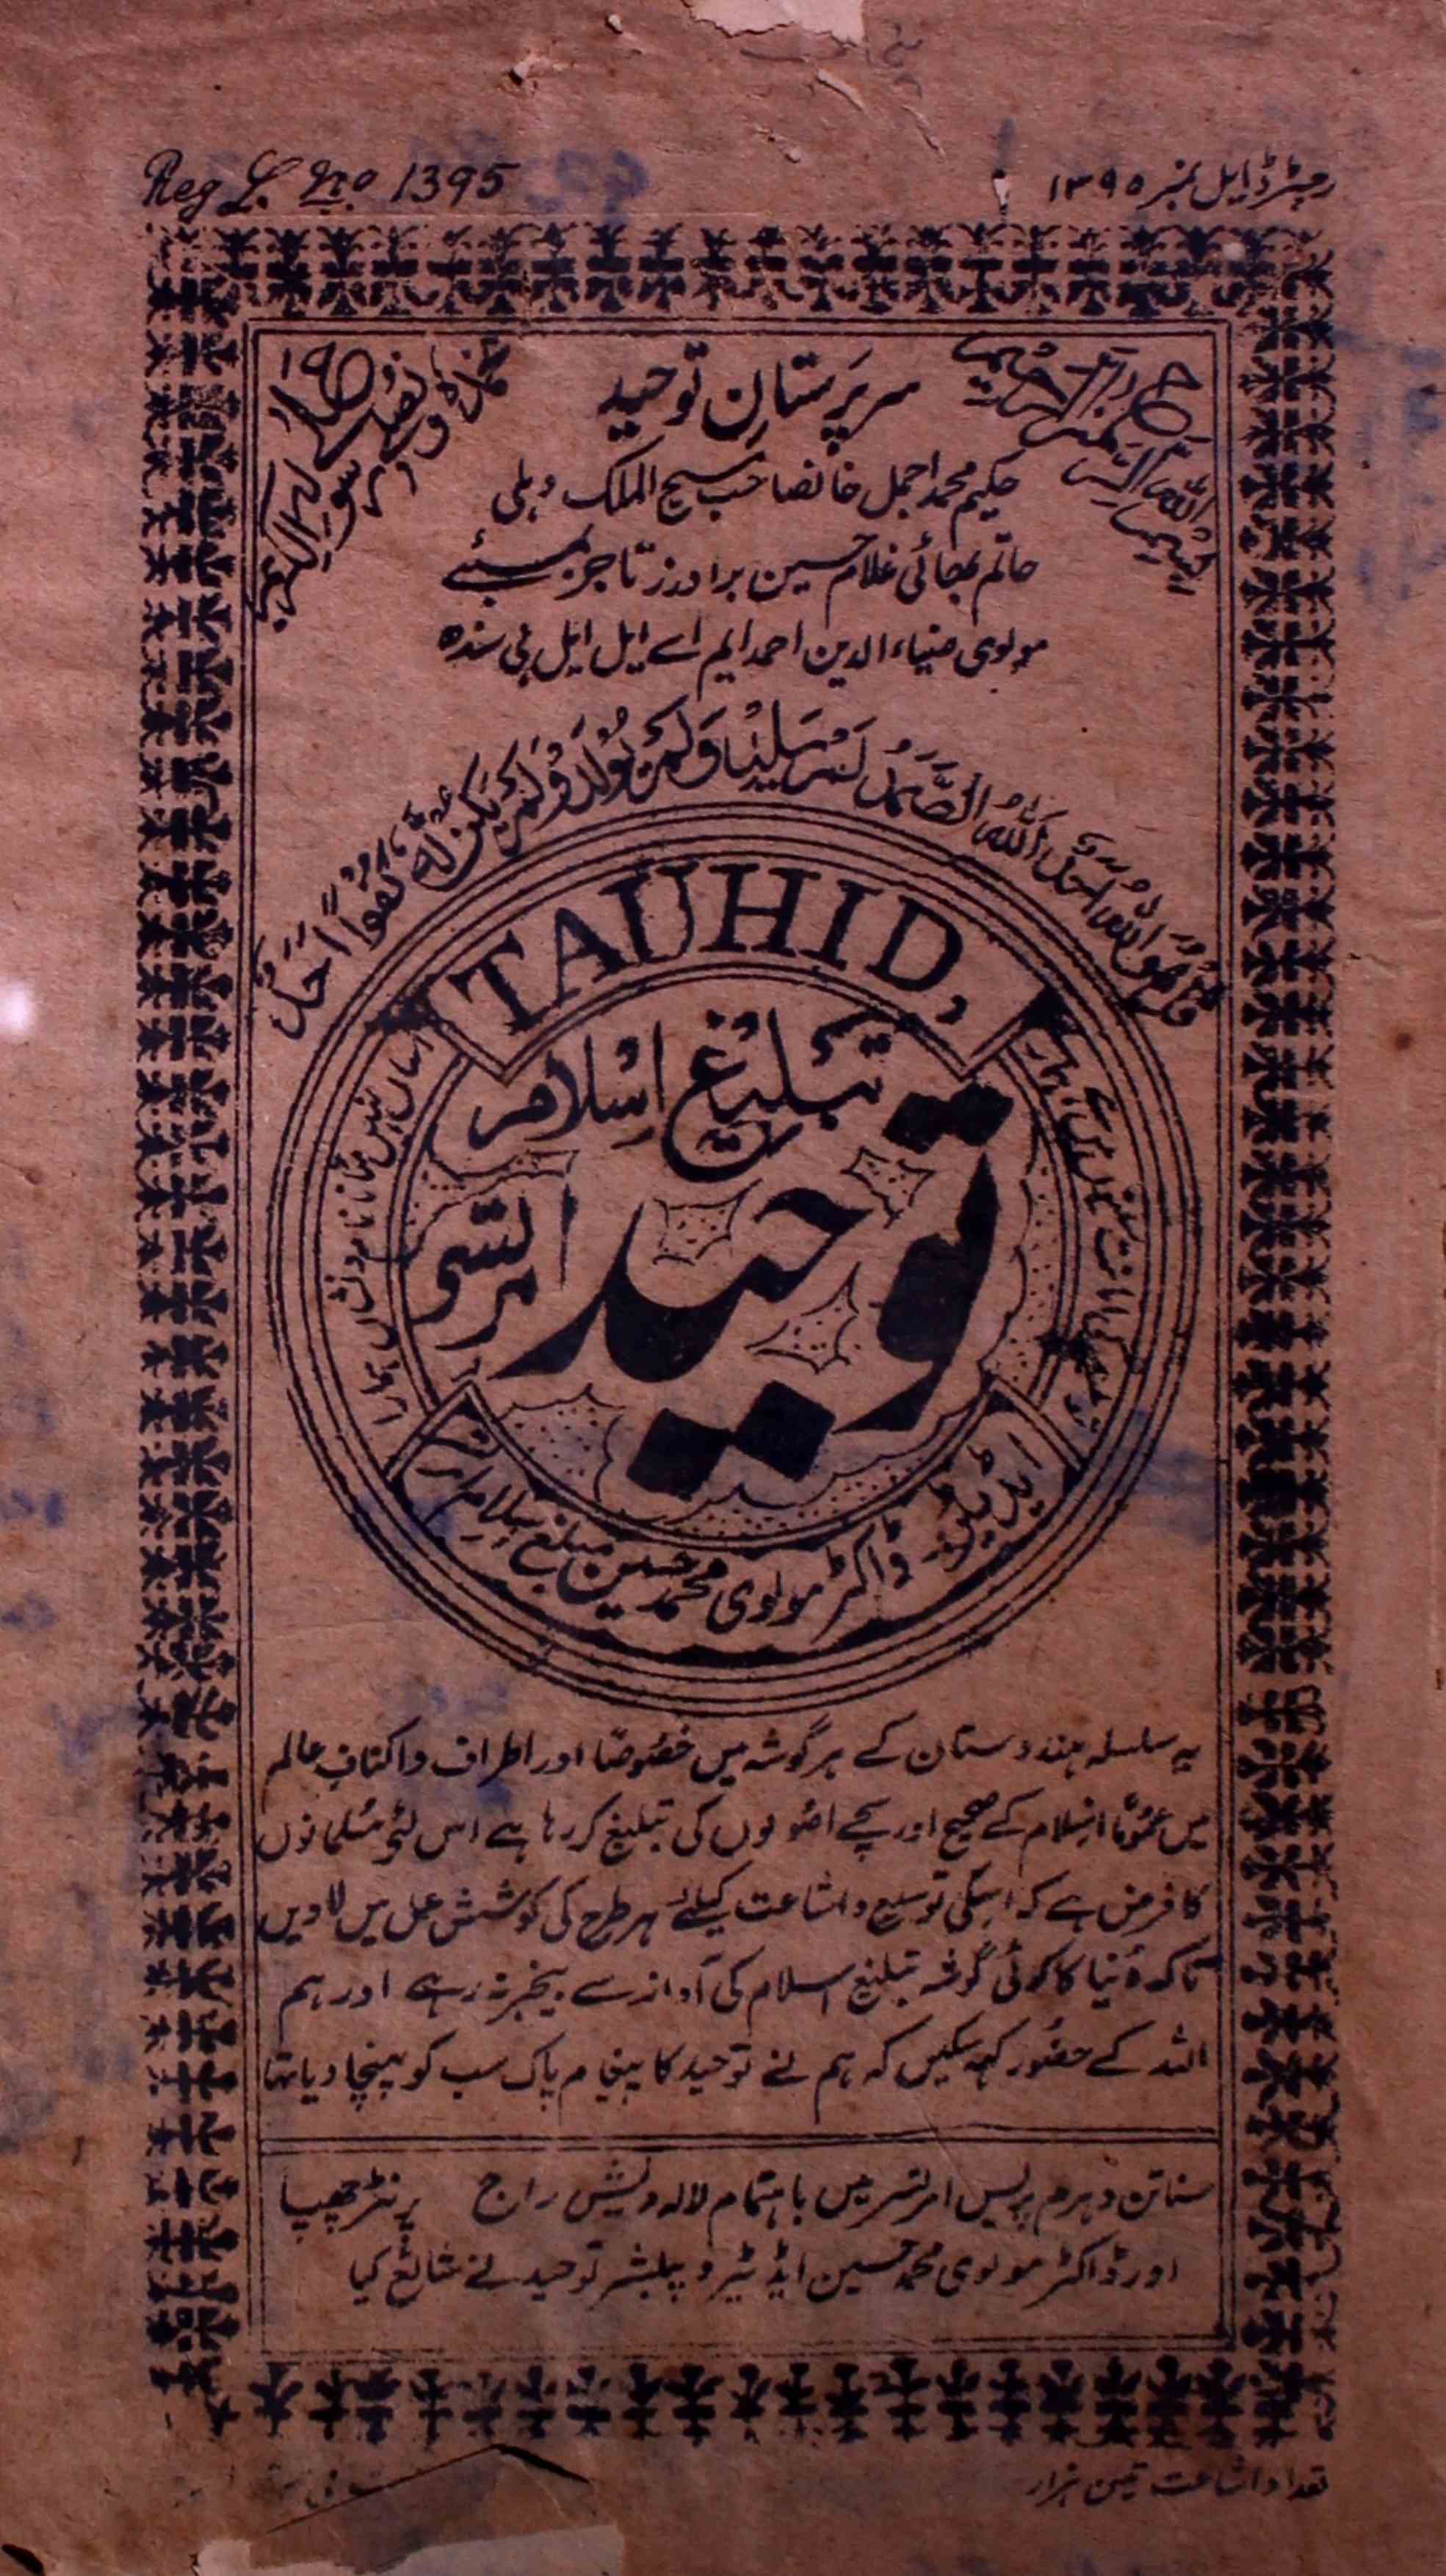 رجسٹرڈ ایل نمبر ۱۳۹۵
Reg L. No. 1395
سرپرستانِ توحید
حکیم محمد اجمل خانصاحب مسیح الملک دہلی
حاتم بھائی غلام حسین برادرز تاجر بمبئے
مولوی ضیاء الدین احمد ایم اے ایل ایل بی سندہ
قُلْ هُوَ اللهُ اَحَدٌ اَللهُ الصَّمَدُ لَمْ يَلِدْ وَلَمْ يُوْلَدْ وَلَمْ يَكُنْ لَّهٗ كُفُوًا اَحَدٌ
TAUHID,
تبلیغ اسلام
توحید
امرتسر
توحید کی امانت سینوں میں ہے ہمارے
آساں نہیں مٹانا نام و نشاں ہمارا
ایڈیٹر۔ ڈاکٹر مولوی محمد حسین مبلغ اسلام امرتسر
یہ سلسلہ ہندوستان کے ہر گوشہ میں خصوصًا اور اطراف و اکناف عالم
میں عمومًا اسلام کے صحیح اور سچے اصولوں کی تبلیغ کر رہا ہے اس لئے مسلمانوں
کا فرض ہے کہ اسکی توسیع و اشاعت کیلئے ہر طرح کی کوشش عمل میں لاویں
تاکہ دُنیا کا کوئی گوشہ تبلیغ اسلام کی آواز سے بیخبر نہ رہے اور ہم
اللہ کے حضور کہہ سکیں کہ ہم نے توحید کا پیغام پاک سب کو پہنچا دیا تھا
سناتن دہرم پریس امرتسر میں باہتمام لالہ دیش راج پرنٹر چھپا
اور ڈاکٹر مولوی محمد حسین ایڈیٹر و پبلشر توحید نے شائع کیا
تعداد اشاعت تین ہزار